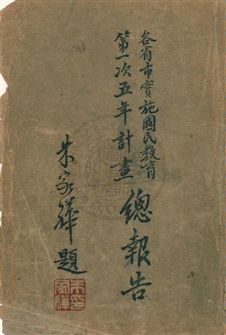 各省市實施國民教育
第一次五年計畫
總報告
朱家驊題
朱家驊